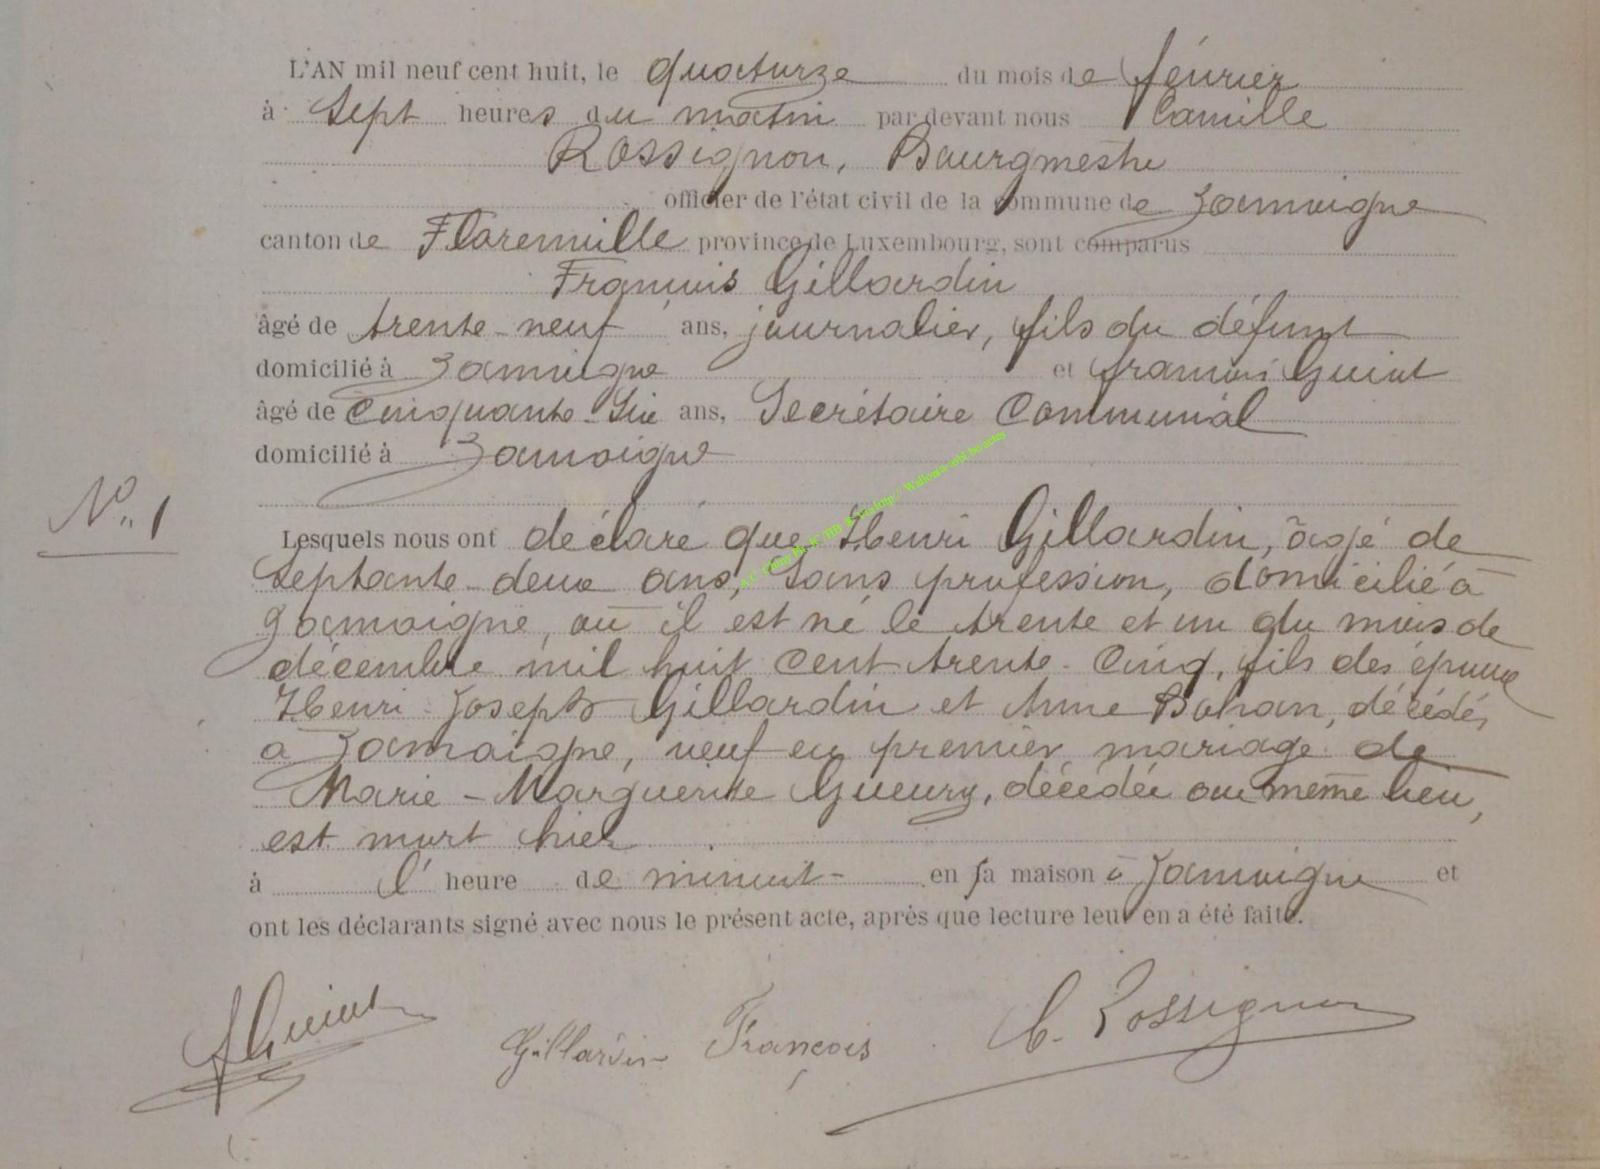 L'AN mil neuf cent huit, le quatorze du mois de février
à sept heures du matin par devant nous Camille
Rossignon, Bourgmestre
officier de l'état civil de la commune de Jamoigne
canton de Florenville province de Luxembourg, sont comparus
François Gillardin
âgé de trente-neuf ans, journalier, fils du défunt
domicilié à Jamoigne et François Guiot
âgé de Cinquante-Six ans, Secrétaire Communal
domicilié à Jamoigne
N° 1
Lesquels nous ont déclaré que Henri Gillardin, âgé de
Septante-deux ans, Sans profession, domicilié à
Jamoigne, où il est né le trente et un du mois de
décembre mil huit cent trente-Cinq, fils des époux
Henri-Joseph Gillardin et Anne Bohan, décédés
à Jamoigne, veuf en premier mariage de
Marie-Marguerite Gueury, décédée au même lieu,
est mort hier
à l'heure de minuit en sa maison à Jamoigne et
ont les déclarants signé avec nous le présent acte, après que lecture leur en a été faite.
Gillardin François C. Rossignon